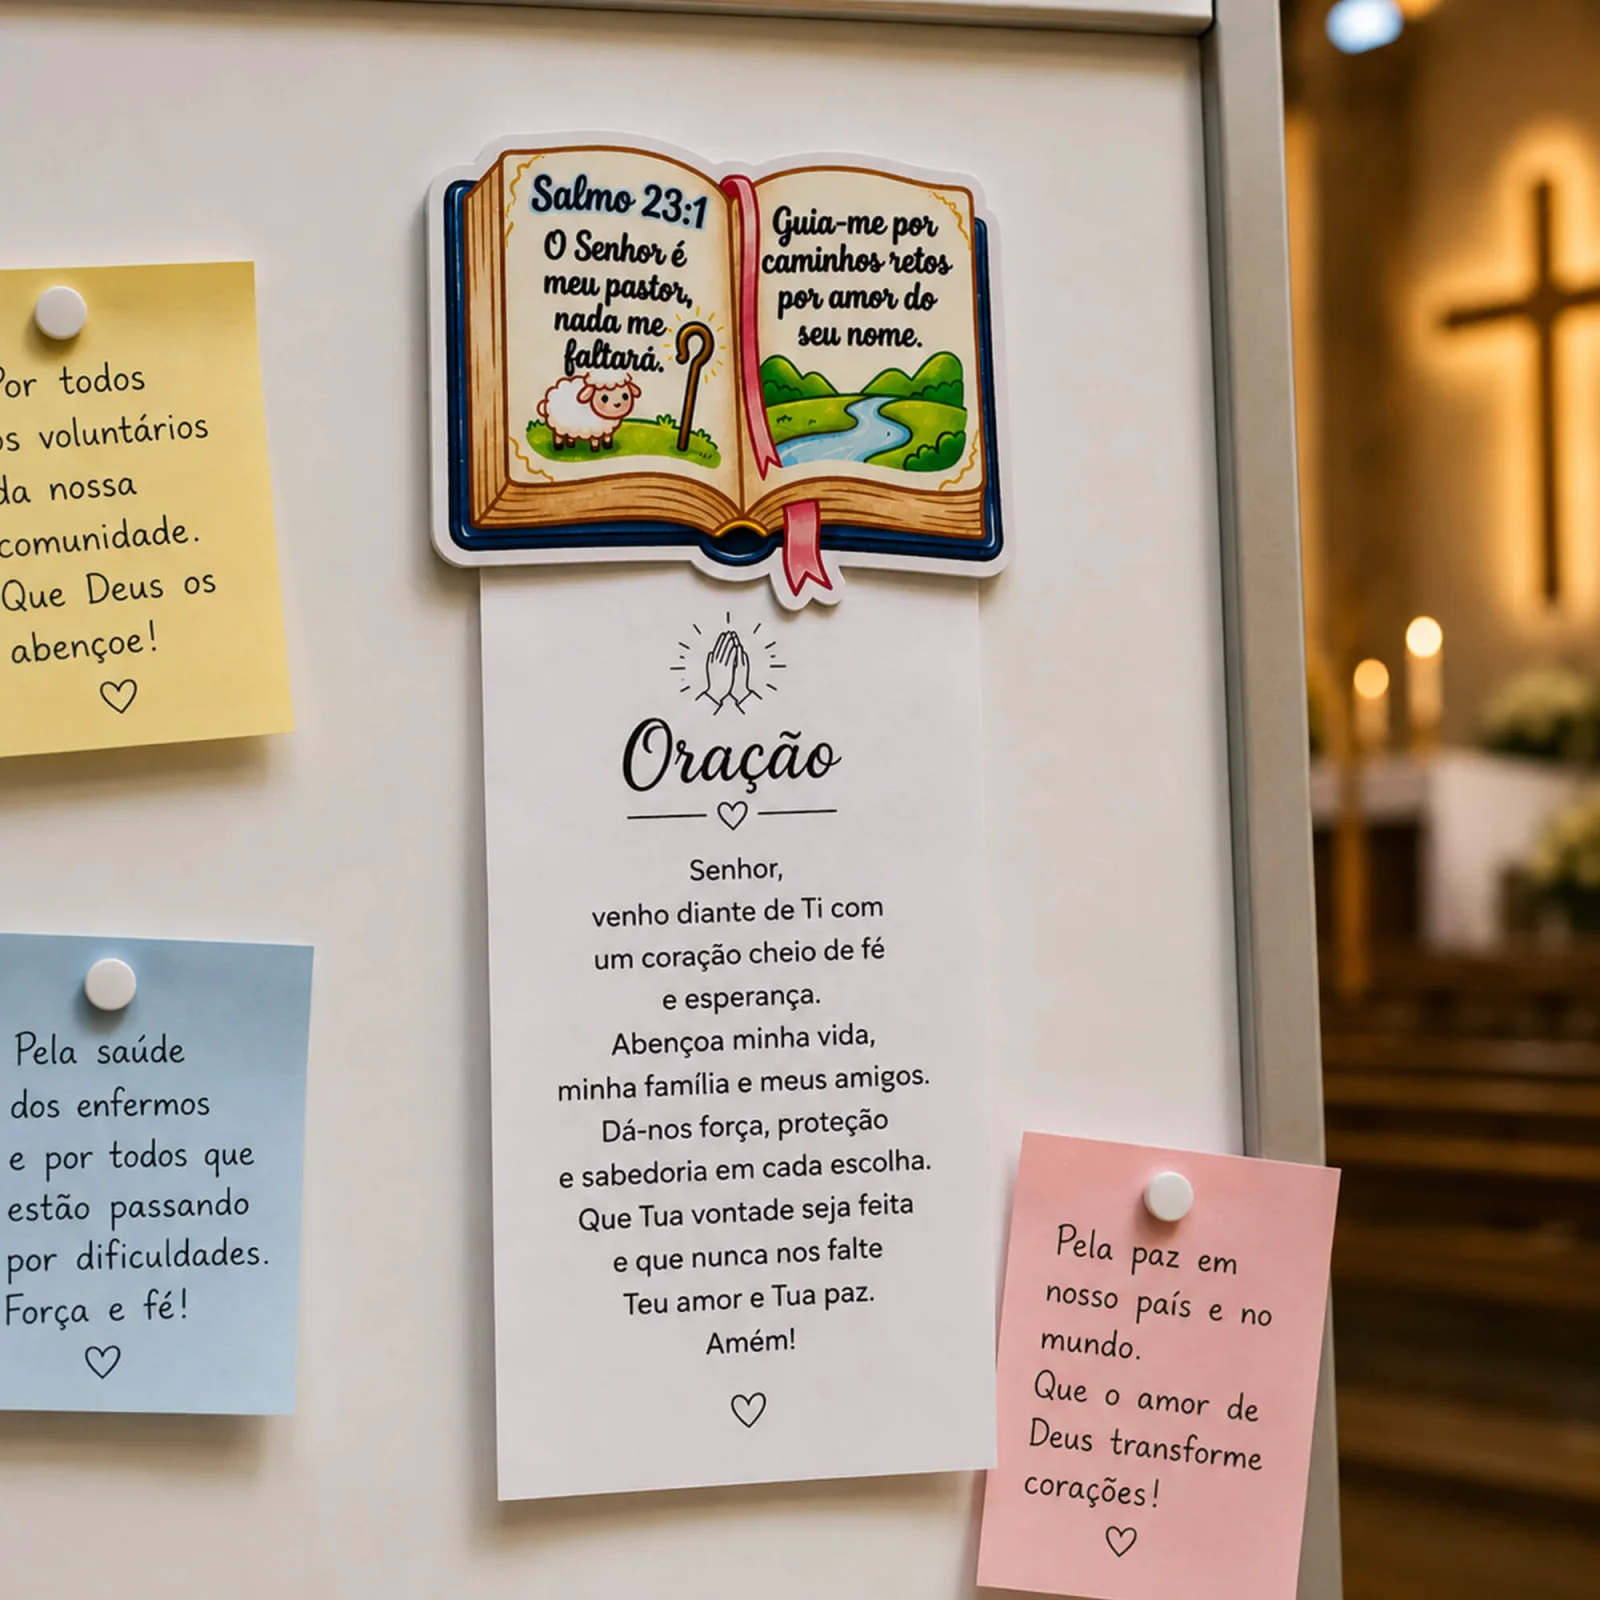 Salmo 23:1
O Senhor é
meu pastor,
nada me
faltará.
Guia-me por
caminhos retos
por amor do
seu nome.
Por todos
os voluntários
da nossa
comunidade.
Que Deus os
abençoe!
Oração
Senhor,
venho diante de Ti com
um coração cheio de fé
e esperança.
Abençoa minha vida,
minha família e meus amigos.
Dá-nos força, proteção
e sabedoria em cada escolha.
Que Tua vontade seja feita
e que nunca nos falte
Teu amor e Tua paz.
Amém!
Pela saúde
dos enfermos
e por todos que
estão passando
por dificuldades.
Força e fé!
Pela paz em
nosso país e no
mundo.
Que o amor de
Deus transforme
corações!